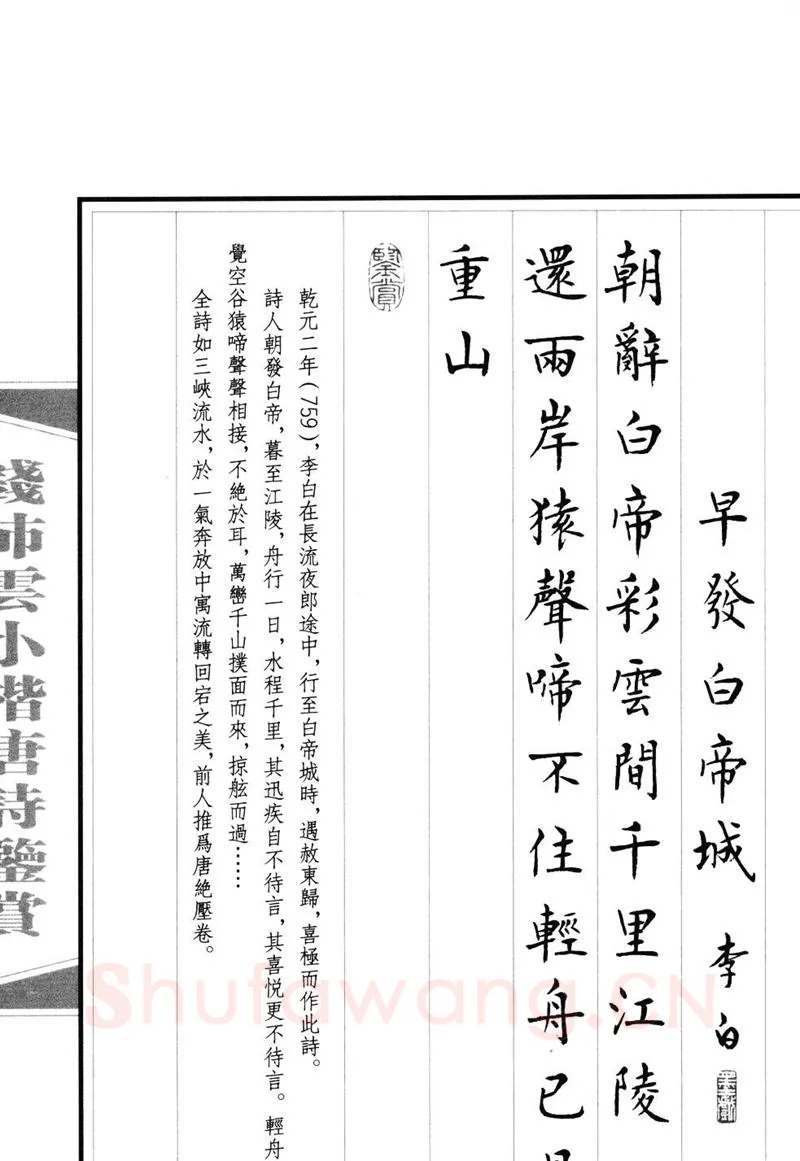 早發白帝城 李白
朝辭白帝彩雲間千里江陵
還兩岸猿聲啼不住輕舟已
重山
鑒賞
乾元二年(759)，李白在長流夜郎途中，行至白帝城時，遇赦東歸，喜極而作此詩。
詩人朝發白帝，暮至江陵，舟行一日，水程千里，其迅疾自不待言，其喜悦更不待言。輕舟
覺空谷猿啼聲聲相接，不絶於耳，萬巒千山撲面而來，掠舷而過……
全詩如三峽流水，於一氣奔放中寓流轉回宕之美，前人推爲唐絶壓卷。
錢沛雲小楷唐詩鑒賞
Shufawang.CN